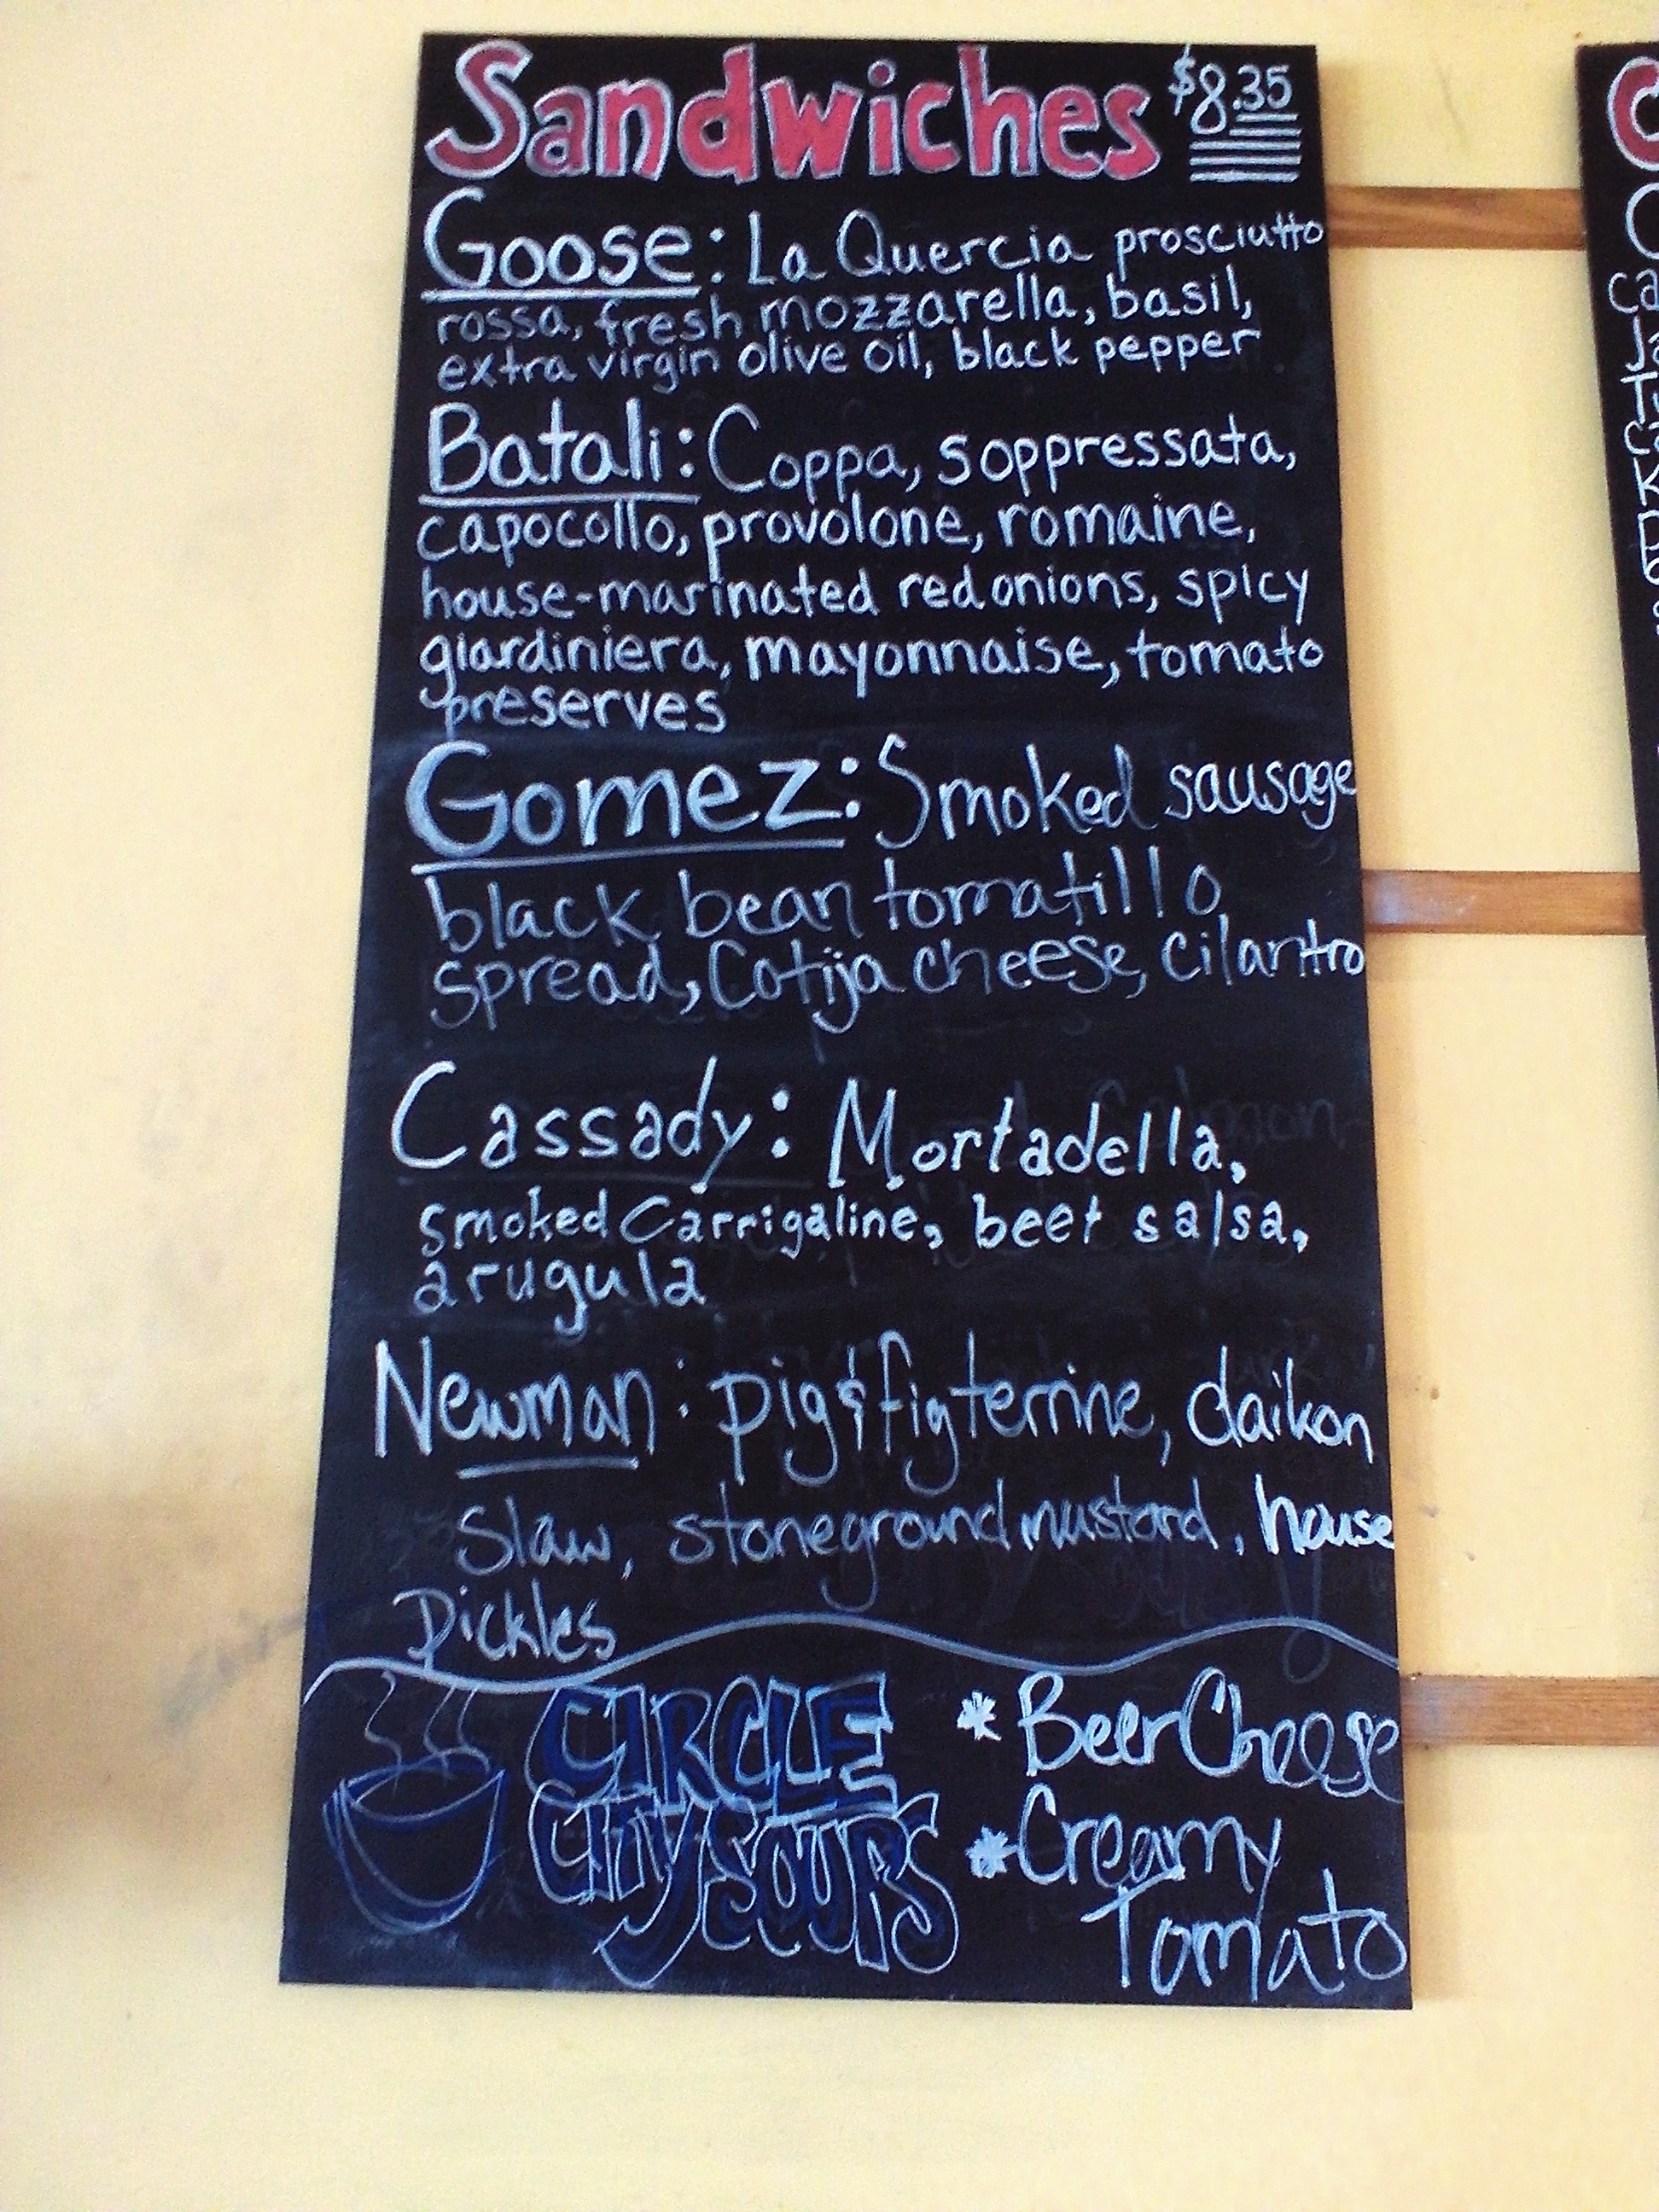 Sandwiches $8.35
Goose: La Quercia prosciutto
rossa, fresh mozzarella, basil,
extra virgin olive oil, black pepper
Batali: Coppa, soppressata,
capocollo, provolone, romaine,
house-marinated red onions, spicy
giardiniera, mayonnaise, tomato
preserves
Gomez: Smoked sausage
black bean tomatillo
spread, Cotija cheese, cilantro
Cassady: Mortadella,
smoked Carrigaline, beet salsa,
arugula
Newman: pig & fig terrine, daikon
slaw, stoneground mustard, house
Pickles
CIRCLE
City SOUPS
* Beer Cheese
* Creamy
Tomato